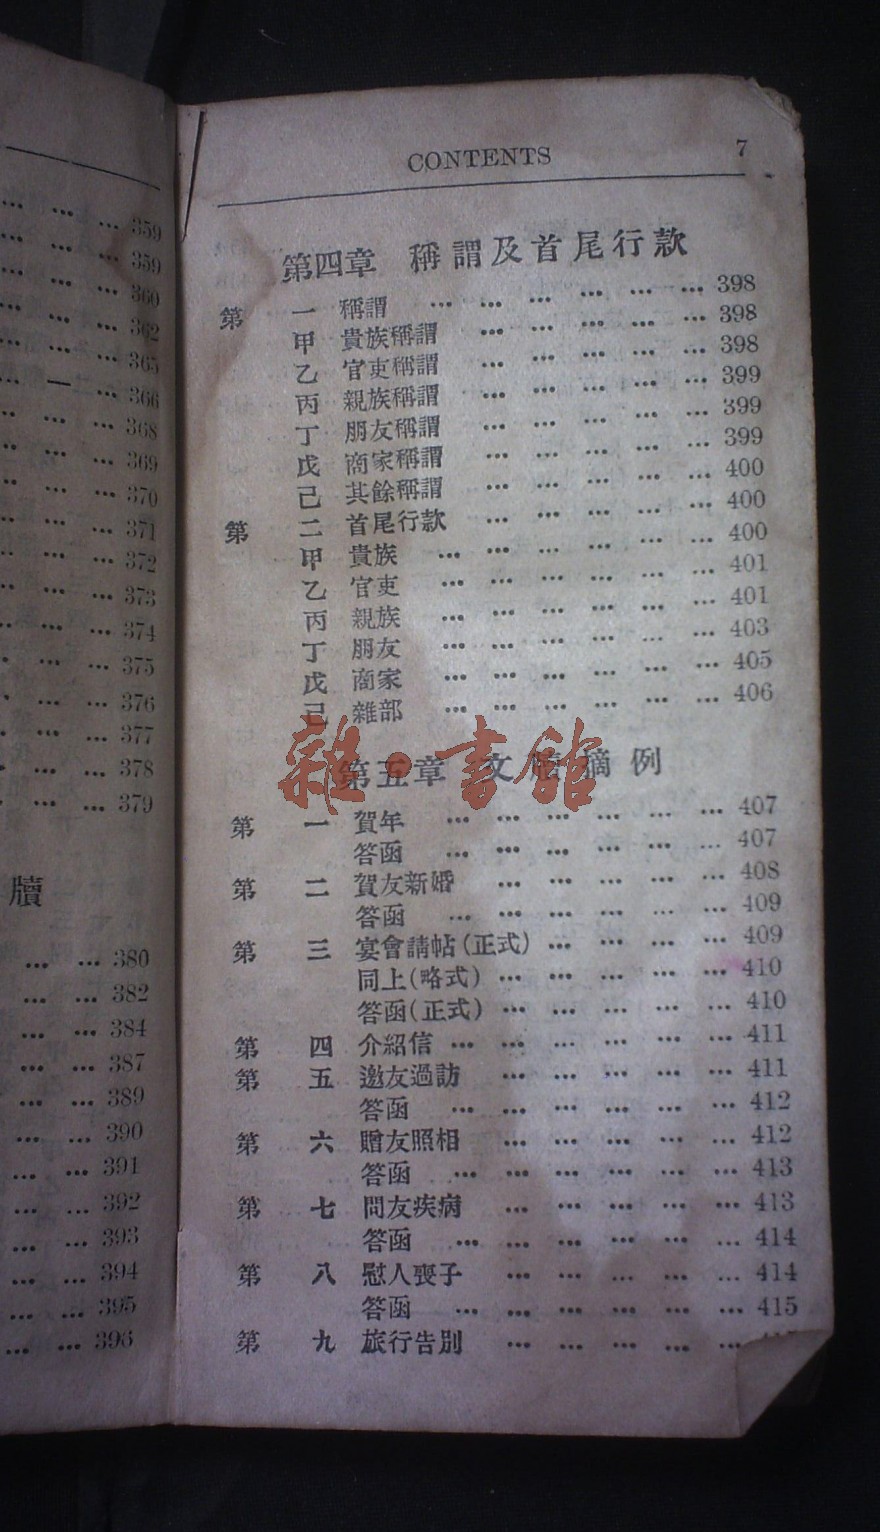 ... ... ... 359
... ... ... 359
... ... ... 360
... ... ... 362
... ... ... 365
... — ... 366
... ... ... 368
... ... ... 369
... ... ... 370
... ... ... 371
... ... ... 372
... ... ... 373
... ... ... 374
... ... ... 375
... ... ... 376
... ... ... 377
... ... ... 378
... ... 379
牘
... ... 380
... ... 382
... ... 384
... ... 387
... ... 389
... ... 390
... ... 391
... ... 392
... ... 393
... ... 394
... ... 395
... ... 396
CONTENTS 7
第四章 稱謂及首尾行款
第 一 稱謂 ... ... ... ... ... ... 398
甲 貴族稱謂 ... ... ... ... ... 398
乙 官吏稱謂 ... ... ... ... ... 398
丙 親族稱謂 ... ... ... ... ... 399
丁 朋友稱謂 ... ... ... ... ... 399
戊 商家稱謂 ... ... ... ... ... 399
己 其餘稱謂 ... ... ... ... ... 400
第 二 首尾行款 ... ... ... ... ... 400
甲 貴族 ... ... ... ... ... ... 400
乙 官吏 ... ... ... ... ... ... 401
丙 親族 ... ... ... ... ... ... 401
丁 朋友 ... ... ... ... ... ... 403
戊 商家 ... ... ... ... ... ... 405
己 雜部 ... ... ... ... ... ... 406
第五章 文牘摘例
雜·書館
第 一 賀年 ... ... ... ... ... ... 407
答函 ... ... ... ... ... ... 407
第 二 賀友新婚 ... ... ... ... ... 408
答函 ... ... ... ... ... ... 409
第 三 宴會請帖(正式) ... ... ... ... 409
同上(略式) ... ... ... ... ... 410
答函(正式) ... ... ... ... ... 410
第 四 介紹信 ... ... ... ... ... ... 411
第 五 邀友過訪 ... ... ... ... ... 411
答函 ... ... ... ... ... ... 412
第 六 贈友照相 ... ... ... ... ... 412
答函 ... ... ... ... ... ... 413
第 七 問友疾病 ... ... ... ... ... 413
答函 ... ... ... ... ... ... 414
第 八 慰人喪子 ... ... ... ... ... 414
答函 ... ... ... ... ... ... 415
第 九 旅行告別 ... ... ... ... ...